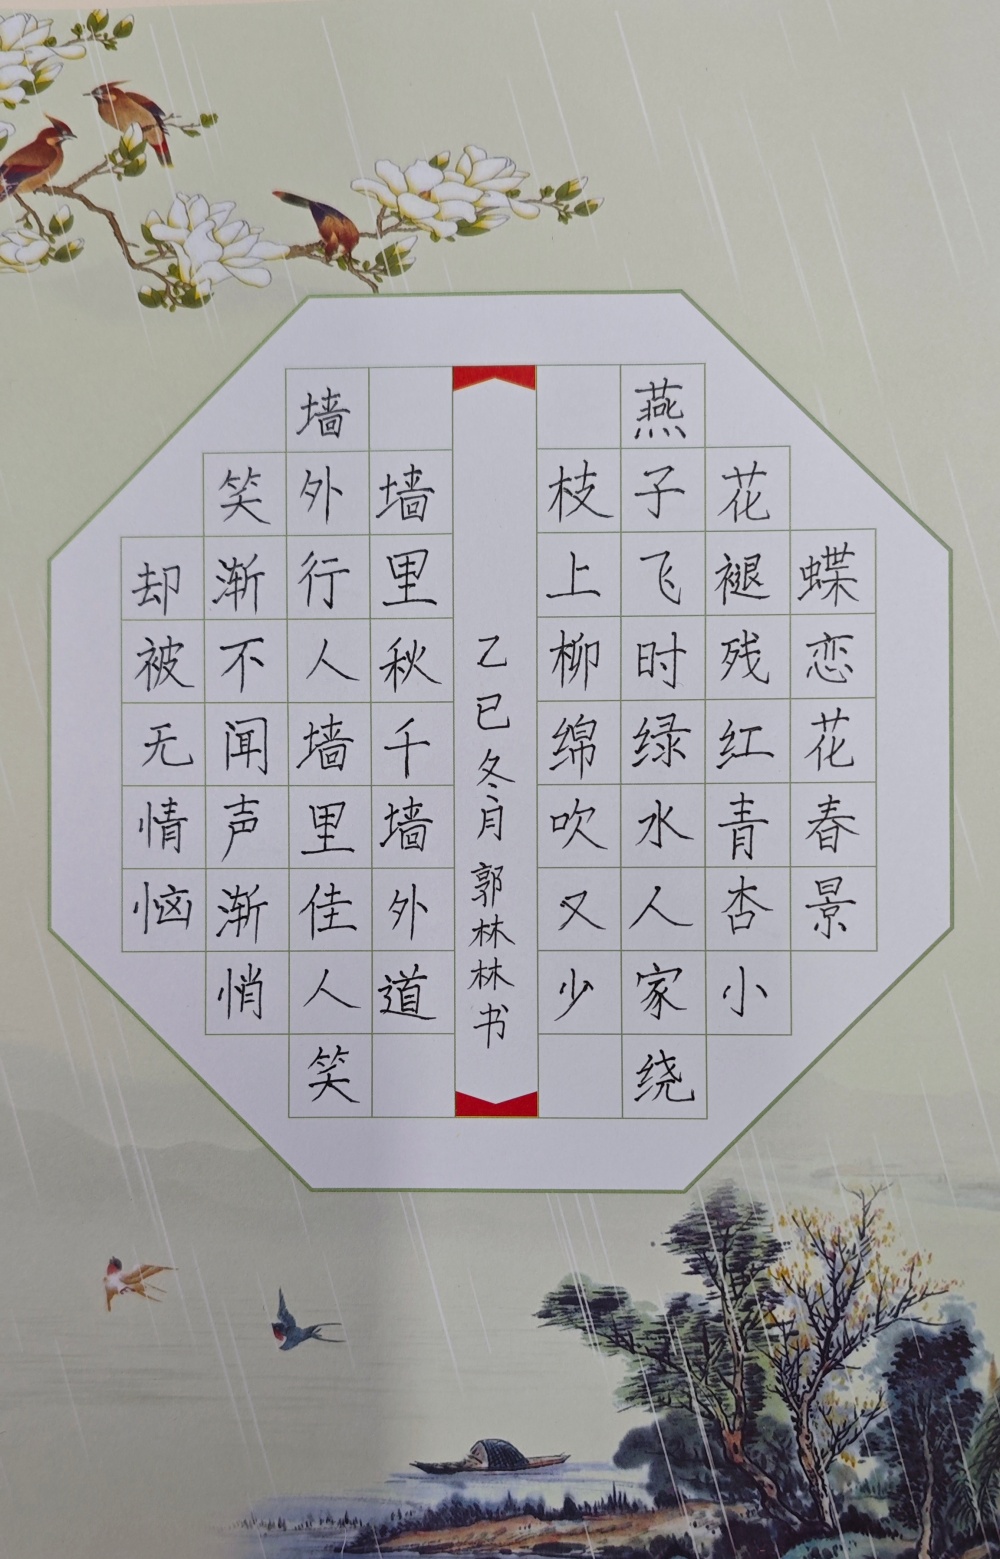 蝶恋花春景
花褪残红青杏小
燕子飞时绿水人家绕
枝上柳绵吹又少
墙里秋千墙外道
墙外行人墙里佳人笑
笑渐不闻声渐悄
却被无情恼
乙巳冬月郭林林书